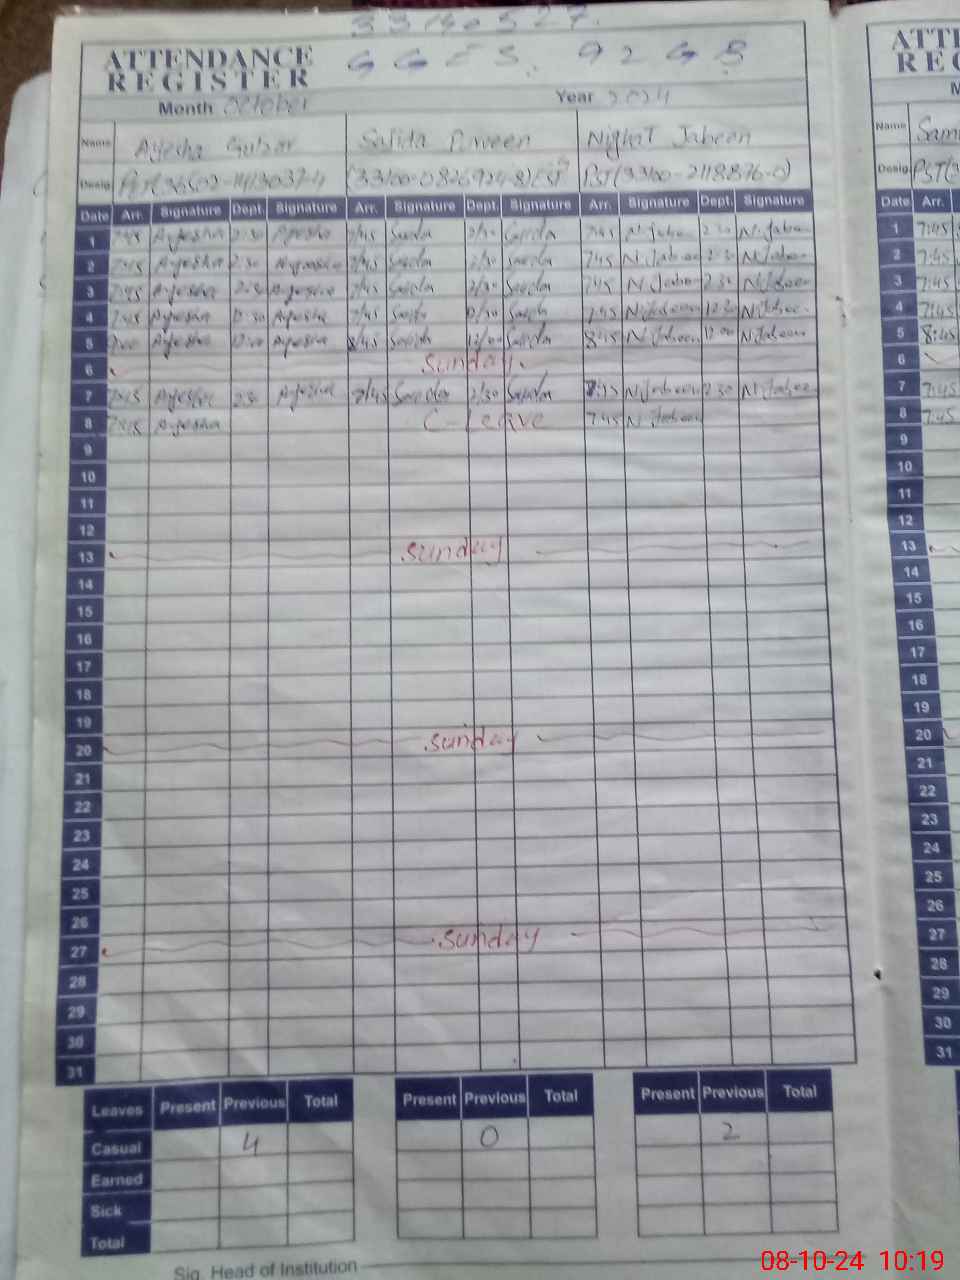 33140527.
ATTENDANCE REGISTER G G E S. 92 G B
Month October Year 2024
Name Ayesha Gulzar Sajida Parveen Nighat Jabeen
Desig. PST(3300-2118876-0)
Date Arr. Signature Dept. Signature Arr. Signature Dept. Signature Arr. Signature Dept. Signature
1 7:45 Ayesha 2:30 Ayesha 7/45 2/30 7:45 N.Jabeen 2:30 N.Jabeen
2 7:45 Ayesha 2:30 Ayesha 7/45 2/30 7:45 N.Jabeen 2:30 N.Jabeen
3 7:45 Ayesha 2:30 Ayesha 7/45 2/30 7:45 N.Jabeen 2:30 N.Jabeen
4 7:45 Ayesha 12:30 Ayesha 7/45 12/30 7:45 N.Jabeen 12:30 N.Jabeen
5 Ayesha 12:00 Ayesha 8/45 12/00 8:45 N.Jabeen 12:00 N.Jabeen
6 Sunday.
7 7:45 Ayesha 2:30 Ayesha 7/45 2/30 N.Jabeen 2:30 N.Jabeen
8 7:45 Ayesha C-Leave 7:45 N.Jabeen
9
10
11
12
13 Sunday
14
15
16
17
18
19
20 Sunday
21
22
23
24
25
26
27 Sunday
28
29
30
31
Leaves Present Previous Total Present Previous Total Present Previous Total
Casual 4 0 2
Earned
Sick
Total
Sig. Head of Institution
ATT
RE
M
Name Sam
Desig. PST(3
Date Arr.
1 7:45
2 7:45
3 7:45
4 7:45
5 8:45
6
7 7:45
8 7:45
9
10
11
12
13
14
15
16
17
18
19
20
21
22
23
24
25
26
27
28
29
30
31
08-10-24 10:19